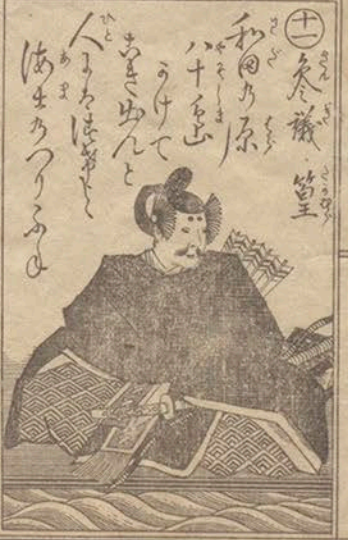 十一 參議 篁
和田乃原
八十島
かけて
こぎ出ぬと
人にはつげよ
海士乃つりふね